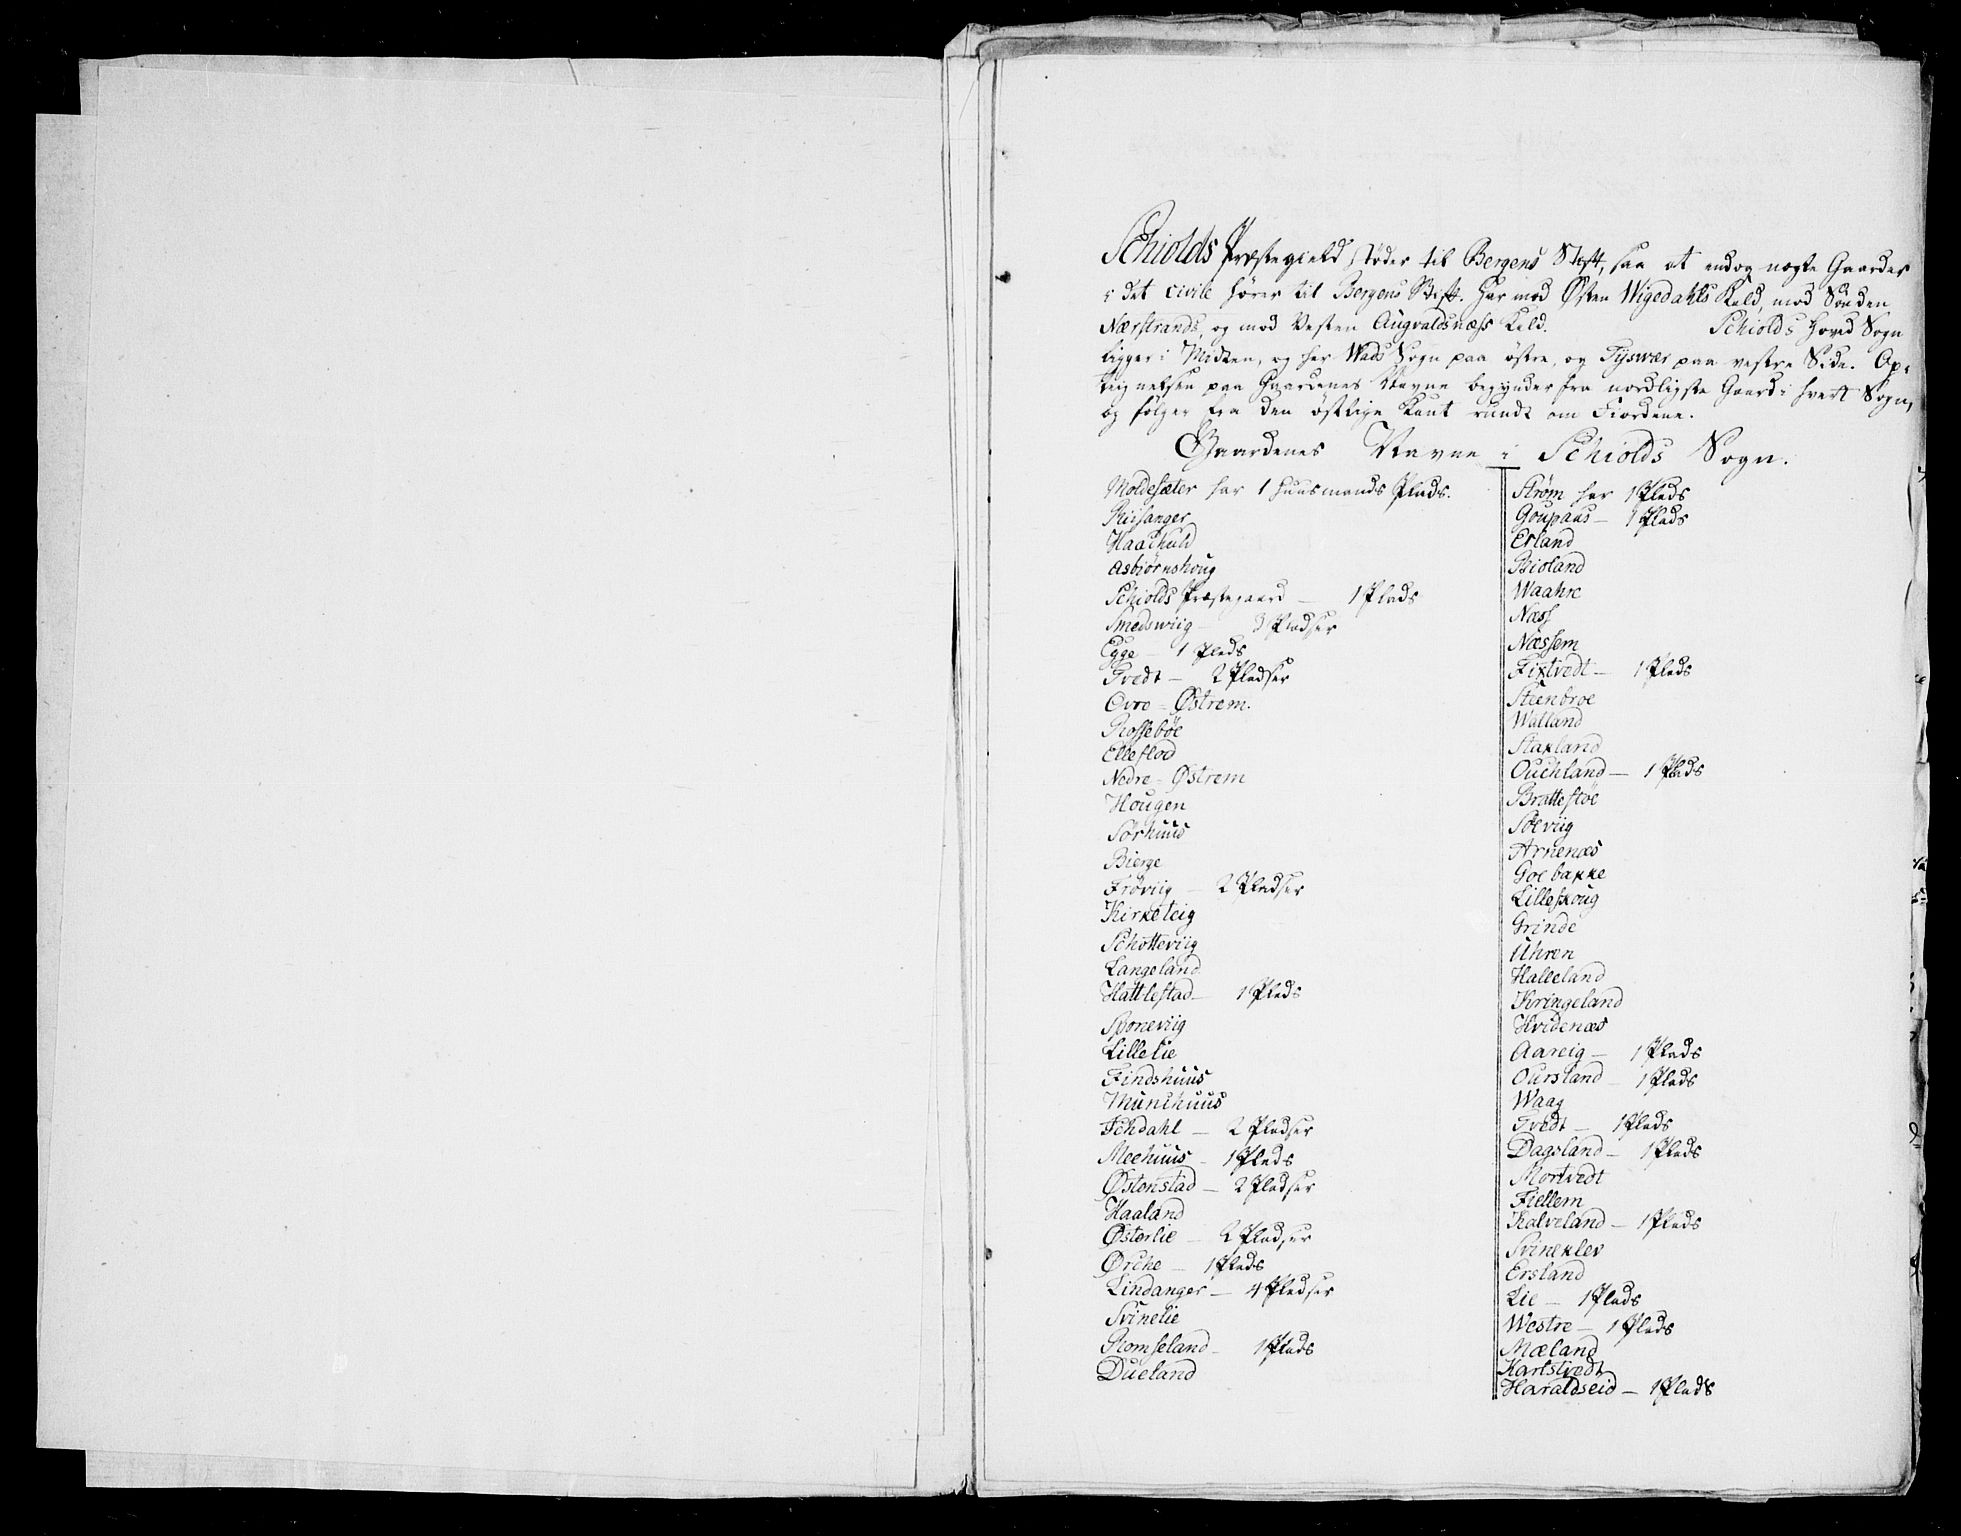 Schiolds Præstegield støder til Bergens Stift, saa at endog nogle Gaarder
i det civile hører til Bergens Stift. Har mod Østen Wigedahls Kald, mod Sønden
Nærstrands, og mod Vesten Augvaldsnæss Kald. Schiolds Hoved Sogn
ligger i Midten, og har Wads Sogn paa østre, og Tysvær paa vestre Side. Op-
teignelsen paa Gaardenes Navne begynder fra nordligste Gaard i hvert Sogn,
og følger fra den østlige Kant rundt om Fiordene.
Gaardenes Navne i Schiolds Sogn.
Moldesæter har 1 Huusmands Plads.
Risanger
Haachuld
Asbiørnshoug
Schiolds Præstegaard — 1 Plads
Smedswiig — 3 Pladser
Egge — 1 Plads
Tvedt — 2 Pladser
Ovre - Østrem.
Rossebøe
Elleflod
Nedre - Østrem
Hougen
Sørhuus
Bierge
Frøviig — 2 Pladser
Kirketeig
Schotteviig
Langeland
Hattlestad — 1 Plads
Sponeviig
Lillelie
Findshuus
Munchuus
Ichdahl — 2 Pladser
Meehuus — 1 Plads
Østenstad — 2 Pladser
Haaland
Østerlie — 2 Pladser
Ørche — 1 Plads
Lindanger — 4 Pladser
Svinelie
Romseland — 1 Plads
Dueland
Strøm har 1 Plads
Goupaas — 1 Plads
Erland
Bioland
Waahre
Næss
Næssem
Fixtvedt — 1 Plads
Steenbroe
Walland
Staxland
Ouchland — 1 Plads
Brattestøe
Søeviig
Arnenæs
Goebakke
Lilleskoug
Grinde
Uhren
Halleland
Kringeland
Hvidenæs
Aareig — 1 Plads
Oursland — 1 Plads
Waag
Tvedt — 1 Plads
Dagsland — 1 Plads
Mortvedt
Fiellem
Kalveland — 1 Plads
Svinekler
Ersland
Lie — 1 Plads
Westre — 1 Plads
Mæland
Karlstvedt
Haraldseid — 1 Plads